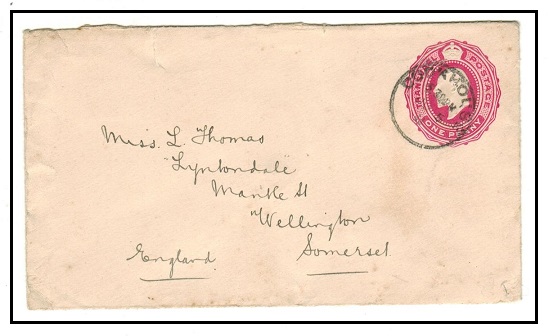 Miss. L. Thomas
"Lyntondale"
Mantle St
Wellington
Somerset
England
POSTAGE
ONE PENNY